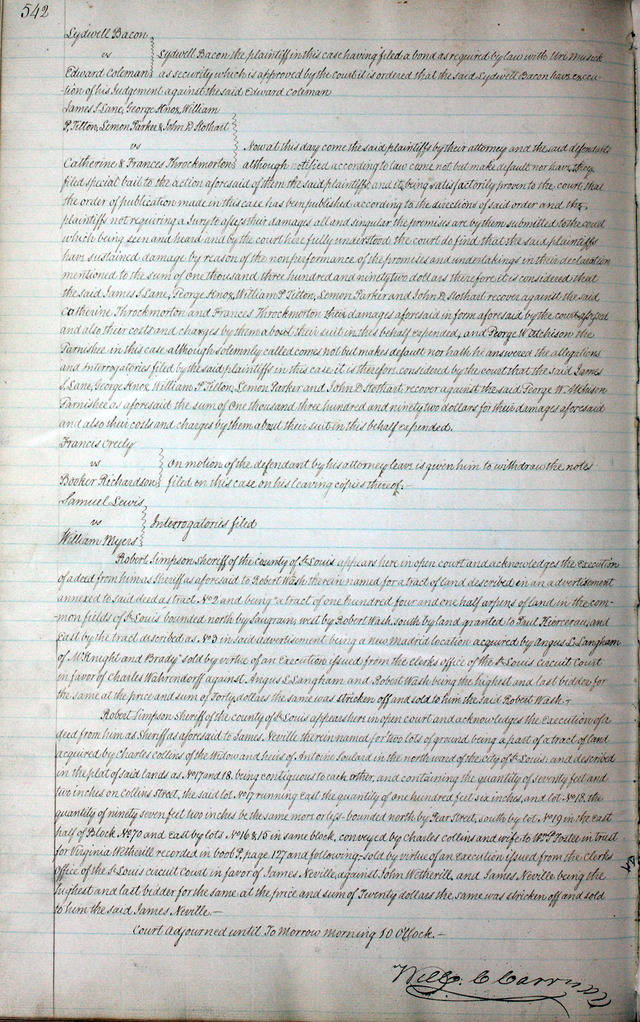 542
Lydwell Bacon
vs
Lydwell Bacon the plaintiff in this case having filed a bond as required by law with Uri Musick
Edward Coleman as security which is approved by the court it is ordered that the said Lydwell Bacon have execu
tion of his Judgement against the said Edward Coleman
James S Lane, George Knox, William
P. Titton, Lemon Parker & John D Stothart
vs
Now at this day come the said plaintiffs by their attorney and the said defendants
Catherine & Frances Throckmorton although notified according to law come not but make default nor have they
filed special bail to the action aforesaid of them the said plaintiffs and it being satisfactorily proven to the court that
the order of publication made in this case has been published according to the directions of said order and the
plaintiffs not requiring a Jury to assess their damages all and singular the premises are by them submitted to the court
which being seen and heard and by the court here fully understood the court do find that the said plaintiffs
have sustained damage by reason of the nonperformance of the promises and undertakings in their declaration
mentioned to the sum of One thousand three hundred and ninety two dollars therefore it is considered that
the said James S Lane, George Knox, William P. Titton, Lemon Parker and John D. Stothart recover against the said
Catherine Throckmorton and Frances Throckmorton their damages aforesaid in form aforesaid by the court assessed
and also their costs and charges by them about their suit in this behalf expended, and George W Atchison the
Garnishee in this case although solemnly called comes not but makes default nor hath he answered the allegations
and Interrogatories filed by the said plaintiffs in this case it is therefore considered by the court that the said James
S Lane, George Knox, William P. Titton, Lemon Parker and John D Stothart, recover against the said George W. Atchison
Garnishee as aforesaid the sum of One thousand three hundred and ninety two dollars for their damages aforesaid
and also their costs and charges by them about their suit in this behalf expended.
Francis Creely
vs
On motion of the defendant by his attorney leave is given him to withdraw the notes
Booker Richardson filed in this case on his leaving copies thereof.-
Samuel Lewis
vs Interrogatories filed
William Myers
Robert Simpson Sheriff of the county of St Louis appears here in open court and acknowledges the Execution
of a deed from him as Sheriff as aforesaid to Robert Wash therein named for a tract of land described in an advertisement
annexed to said deed as tract No 2 and being "a tract of one hundred four and one half arpens of land in the com-
mon fields of St Louis bounded north by Saugrain, west by Robert Wash, south by land granted to Paul Kiercereau, and
East by the tract described as No 3 in said advertisement being a new Madrid location acquired by Angus L. Langham
of McKnight and Brady" sold by virtue of an Execution issued from the clerks office of the St Louis circuit court
in favor of Charles Wahrendorff against Angus L. Langham and Robert Wash being the highest and last bidder for
the same at the price and sum of Forty dollars the same was stricken off and sold to him the said Robert Wash.-
Robert Simpson Sheriff of the county of St Louis appears here in open court and acknowledges the Execution of a
deed from him as Sheriff as aforesaid to James Neville therein named for "two lots of ground being a part of a tract of land
acquired by Charles Collins of the Widow and heirs of Antoine Soulard in the north ward of the city of St Louis, and described
in the plat of said lands as No 17 and 18, being contiguous to each other, and containing the quantity of seventy feet and
two inches on collins Street, the said lot No 17 running East the quantity of one hundred feet six inches, and lot No 18, the
quantity of ninety seven feet two inches be the same more or less - bounded north by Pear Street, south by lot No 19 in the East
half of Block No 70 and East by lots No 16 & 15 in same block, conveyed by Charles Collins and wife to Wm P. Foster in trust
for Virginia Wetherill recorded in book P, page 127 and following - sold by virtue of an execution issued from the Clerks
office of the St Louis circuit court in favor of James Neville, against John Wetherill, and James Neville being the
highest and last bidder for the same at the price and sum of Twenty dollars the same was stricken off and sold
to him the said James Neville.-
Court Adjourned until To Morrow morning 10 O'Clock.-
Will. C Carr